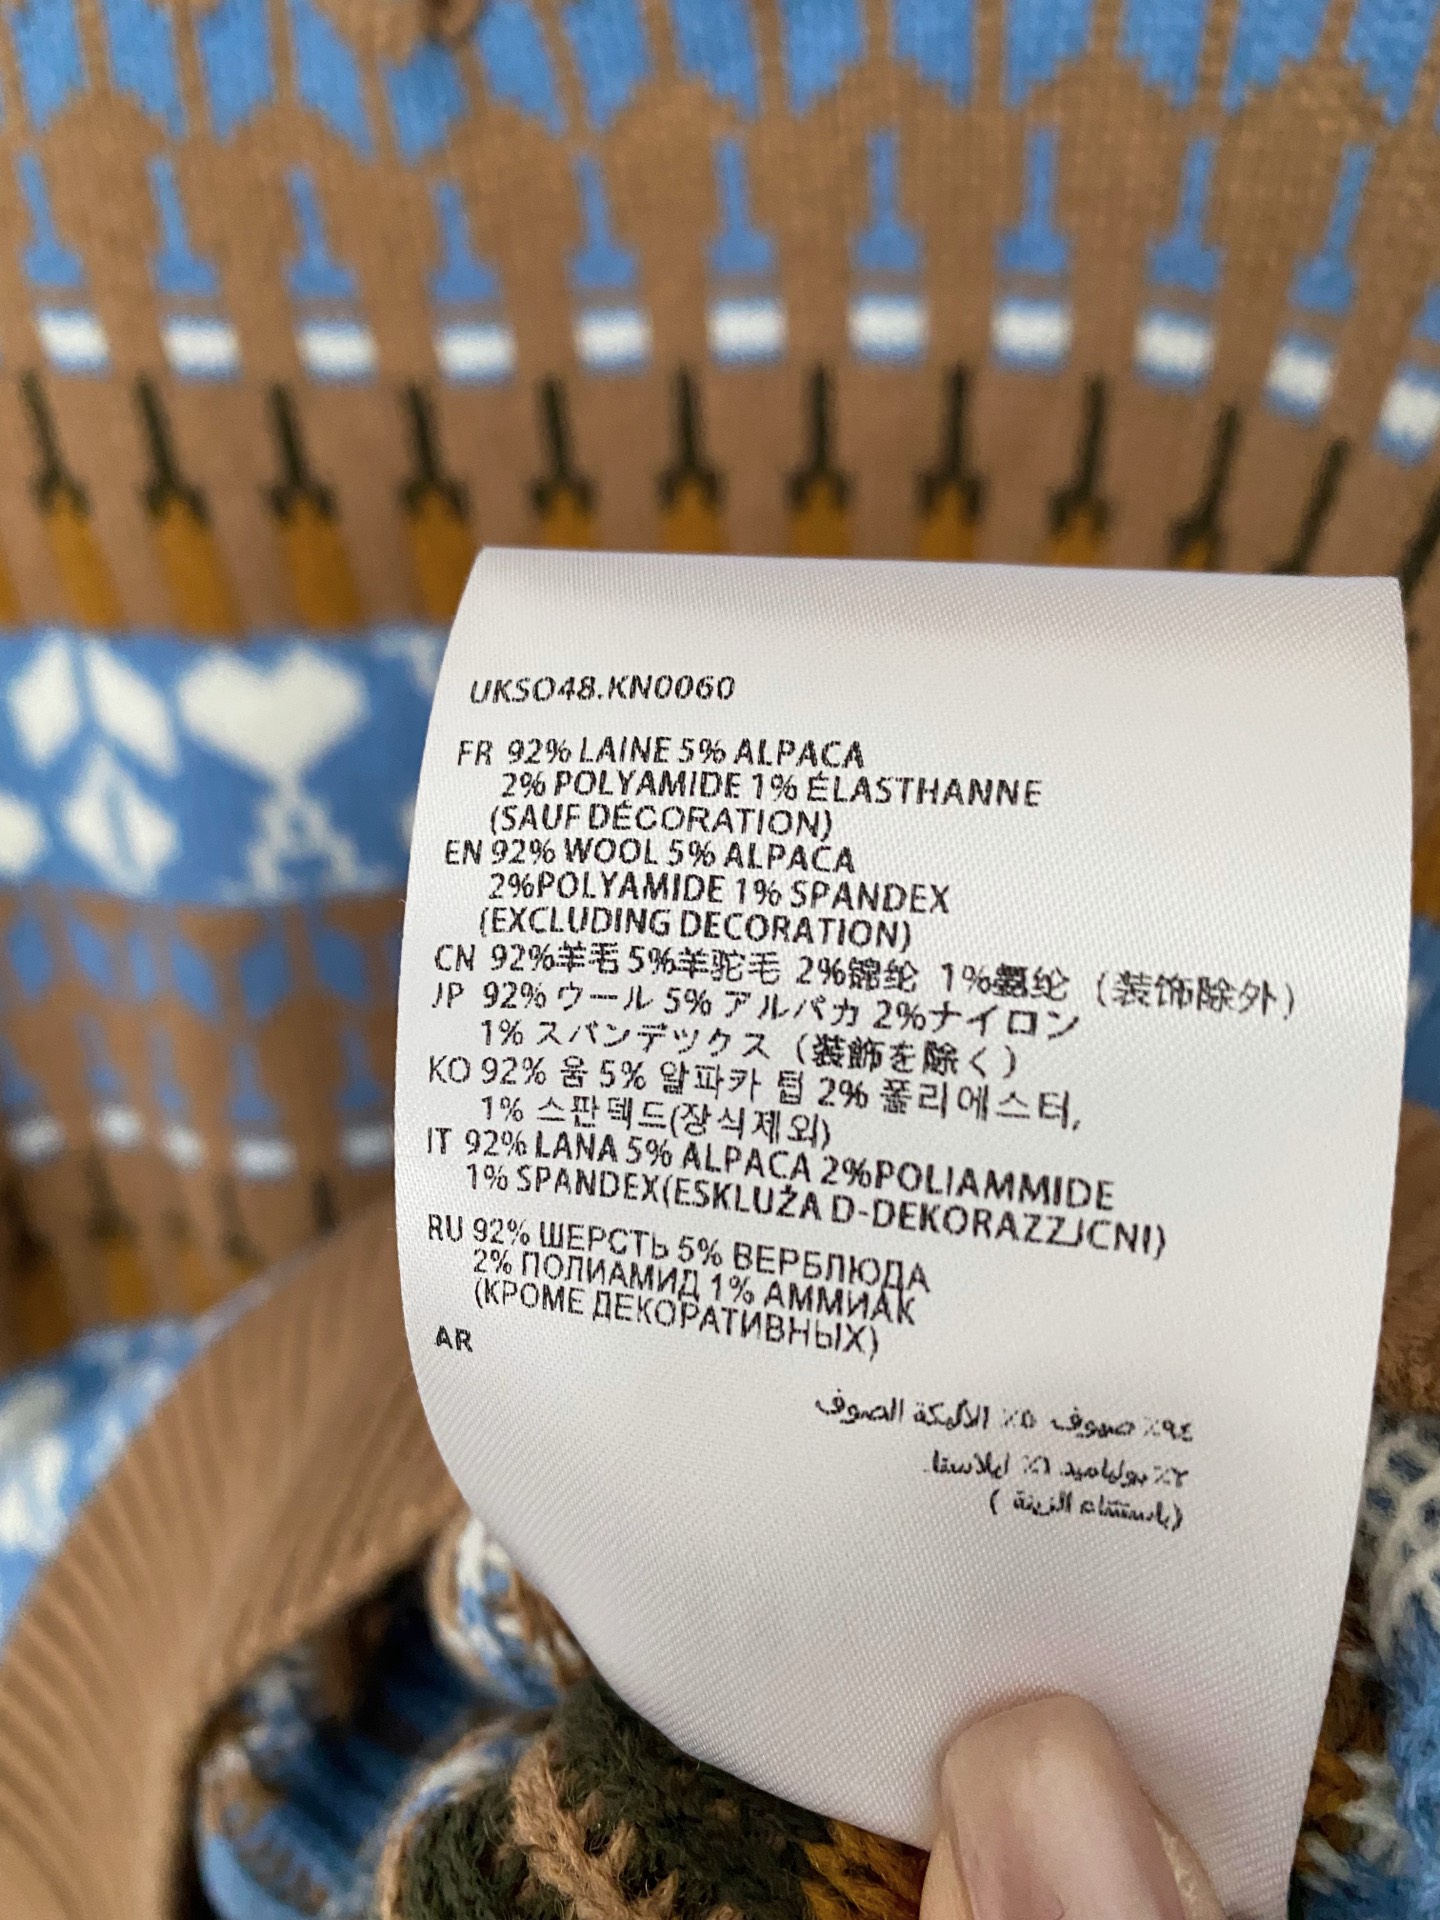 UKSO48.KN0060
FR 92% LAINE 5% ALPACA
2% POLYAMIDE 1% ÉLASTHANNE
(SAUF DÉCORATION)
EN 92% WOOL 5% ALPACA
2%POLYAMIDE 1% SPANDEX
(EXCLUDING DECORATION)
CN 92%羊毛 5%羊驼毛 2%锦纶 1%氨纶 (装饰除外)
JP 92% ウール 5% アルパカ 2%ナイロン
1% スパンデックス (装飾を除く)
KO 92% 울 5% 알파카 털 2% 폴리에스터,
1% 스판덱드(장식제외)
IT 92% LANA 5% ALPACA 2%POLIAMMIDE
1% SPANDEX(ESKLUŻA D-DEKORAZZJCNI)
RU 92% ШЕРСТЬ 5% ВЕРБЛЮДА
2% ПОЛИАМИД 1% АММИАК
(КРОМЕ ДЕКОРАТИВНЫХ)
AR
صوف ٥٪ الألبكة الصوف
٢٪ بولياميد ١٪ إيلاستا
(باستثناء الزينة )